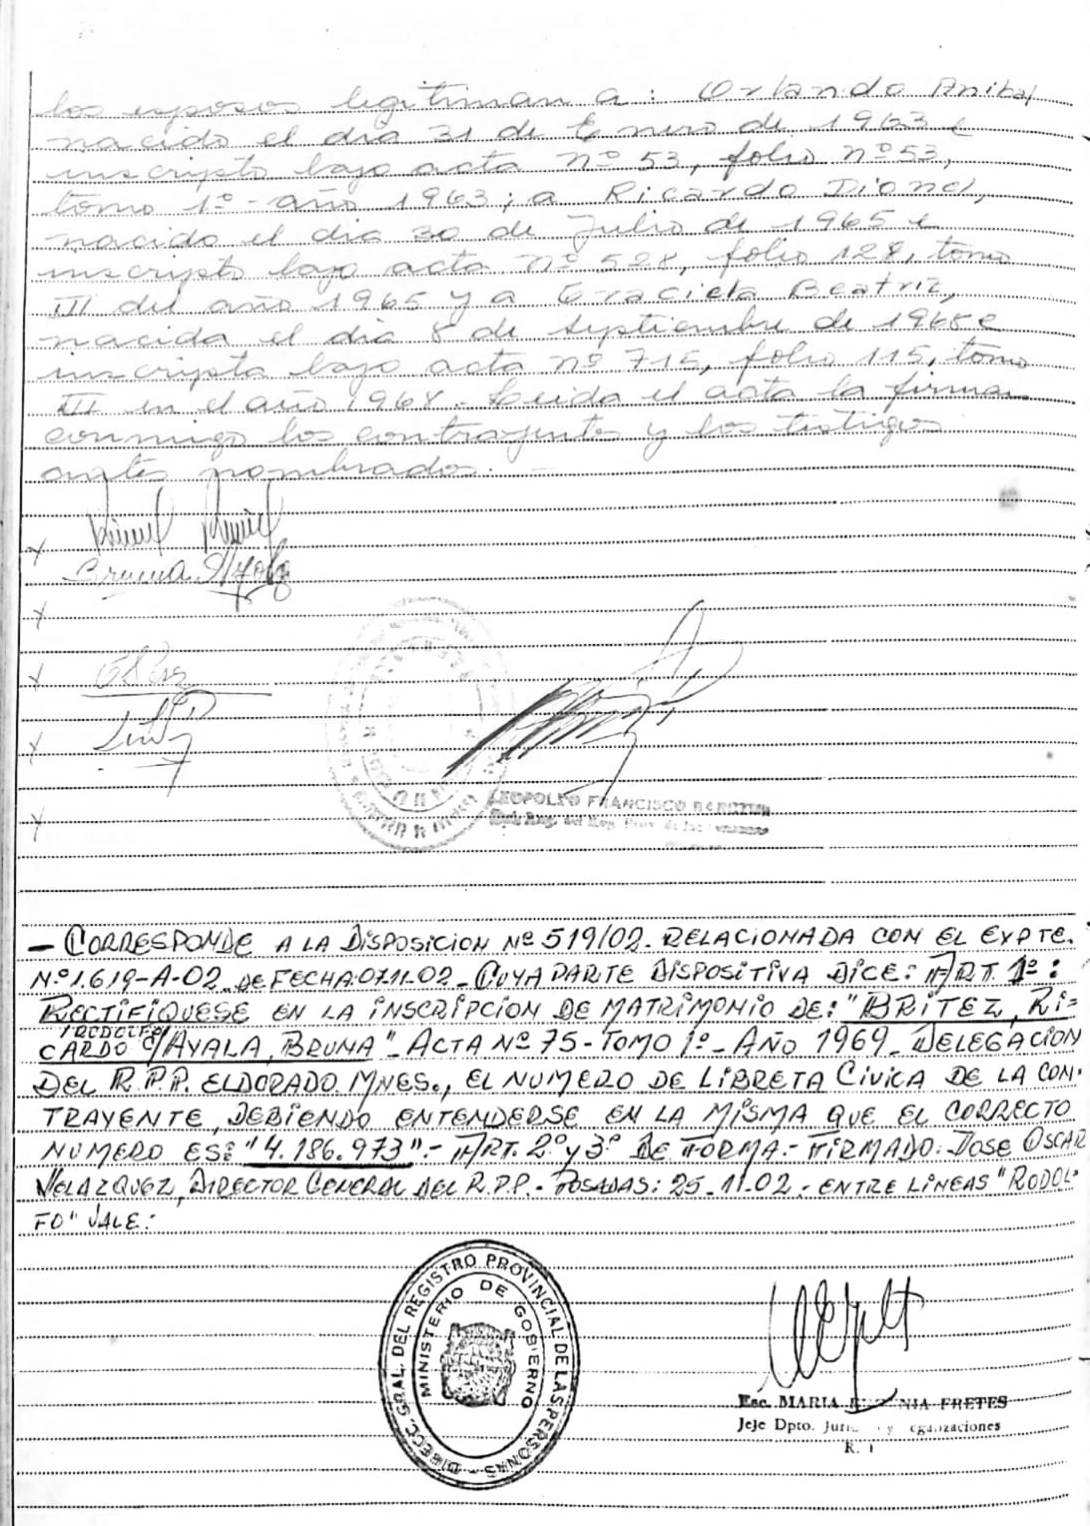 los esposos legitiman a: Orlando Anibal
nacido el dia 31 de Enero de 1963 e
inscripto bajo acta nº 53, folio nº 53,
tomo 1º - año 1963, a Ricardo Dionel,
nacido el dia 30 de Julio de 1965 e
inscripto bajo acta nº 528, folio 128, tomo
III del año 1965 y a Graciela Beatriz,
nacida el dia 8 de septiembre de 1968 e
inscripta bajo acta nº 715, folio 115, tomo
III en el año 1968. Leida el acta la firman
conmigo los contrayentes y los testigos
antes nombrados. -
LEOPOLDO FRANCISCO
— CORRESPONDE A LA DISPOSICION Nº 519/02. RELACIONADA CON EL EXPTE.
Nº 1.619-A-02. DE FECHA: 07.11.02 - CUYA PARTE DISPOSITIVA DICE: ART. 1º:
RECTIFIQUESE EN LA INSCRIPCION DE MATRIMONIO DE: "BRITEZ, RI=
RODOLFO
CARDO C/ AYALA, BRUNA" - ACTA Nº 75 - TOMO 1º - AÑO 1969 - DELEGACION
DEL R.P.P. ELDORADO. MNES., EL NUMERO DE LIBRETA CIVICA DE LA CON-
TRAYENTE, DEBIENDO ENTENDERSE EN LA MISMA QUE EL CORRECTO
NUMERO ES: "4.186.973" - ART. 2º y 3º DE FORMA.- FIRMADO: JOSE OSCAR
VELAZQUEZ, DIRECTOR GENERAL DEL R.P.P. - POSADAS: 25-11-02.- ENTRE LINEAS "RODOL-
FO" VALE.-
DIRECC. GRAL. DEL REGISTRO PROVINCIAL DE LAS PERSONAS -
MINISTERIO DE GOBIERNO
Esc. MARIA FRETES
Jefe Dpto.